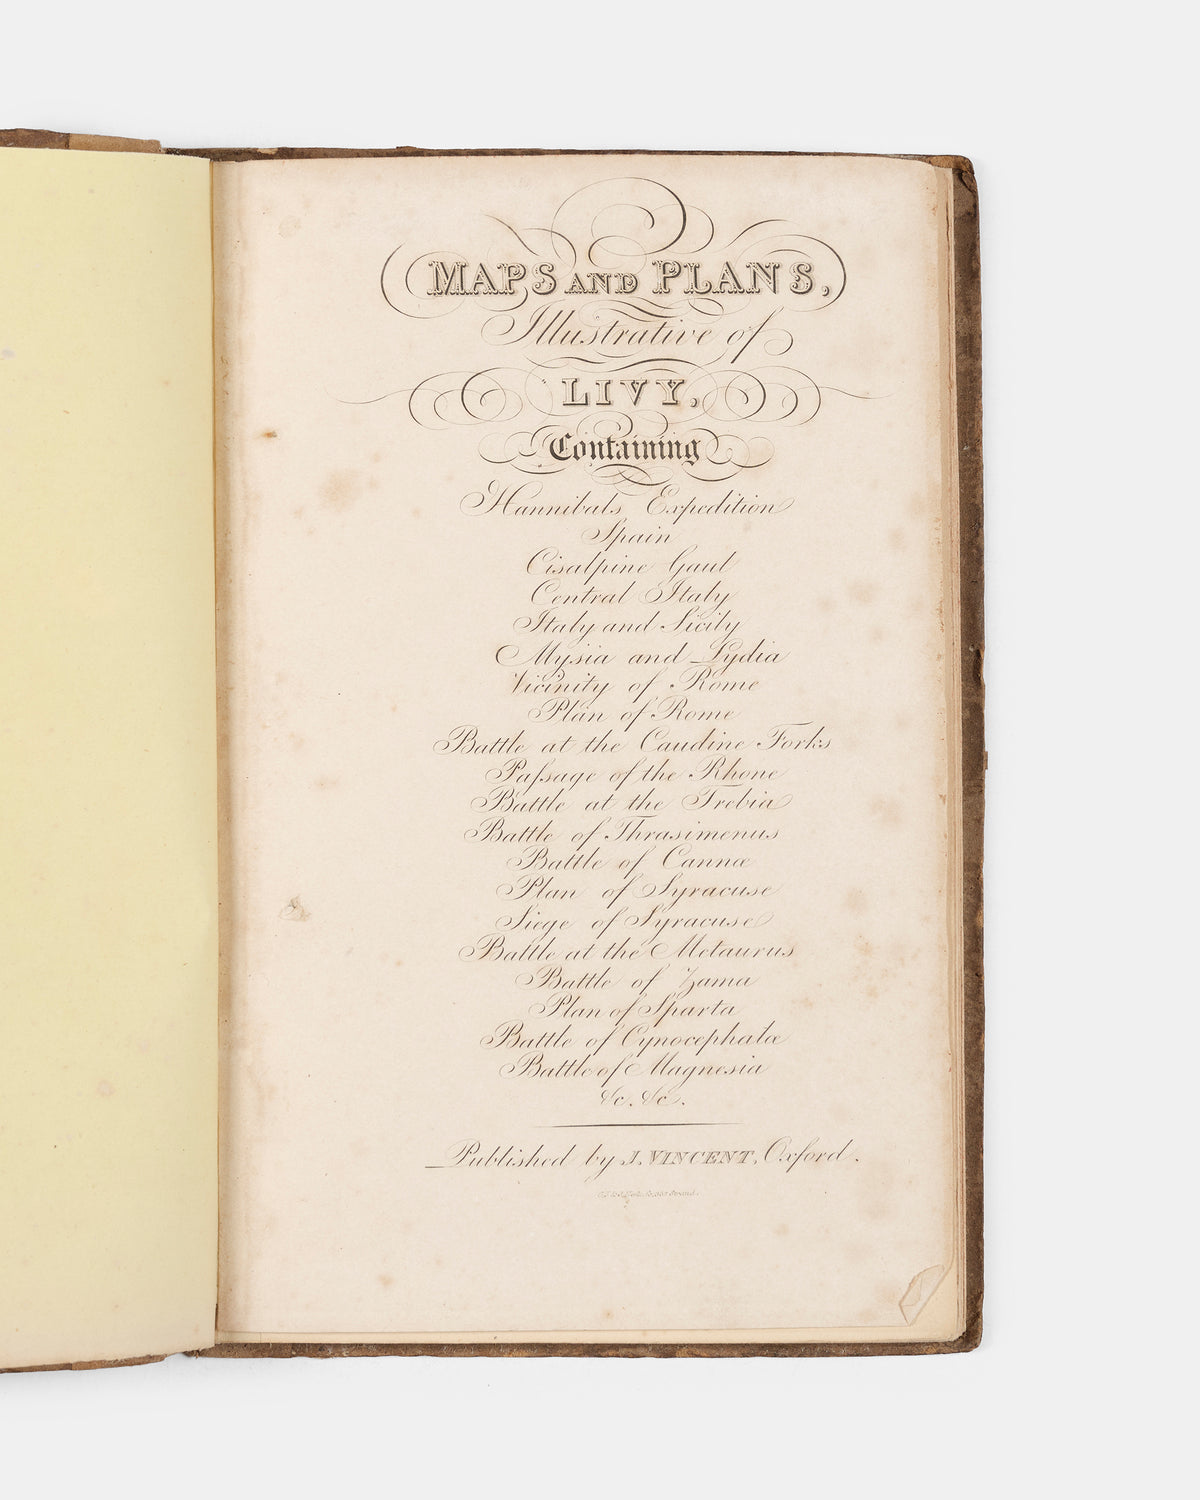 MAPS AND PLANS,
Illustrative of
LIVY,
Containing
Hannibals Expedition
Spain
Cisalpine Gaul
Central Italy
Italy and Sicily
Mysia and Lydia
Vicinity of Rome
Plan of Rome
Battle at the Caudine Forks
Paſsage of the Rhone
Battle at the Trebia
Battle of Thrasimenus
Battle of Cannæ
Plan of Syracuse
Siege of Syracuse
Battle at the Metaurus
Battle of Zama
Plan of Sparta
Battle of Cynocephalæ
Battle of Magnesia
&c. &c.
Published by J. VINCENT, Oxford.